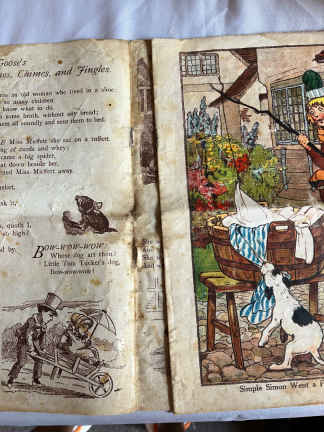 Goose's
Chimes, and Jingles.
an old woman who lived in a shoe
so many children
know what to do.
some broth, without any bread;
them all soundly and sent them to bed.
Miss Muffett she sat on a tuffett
of curds and whey;
came a big spider,
sat down beside her,
Miss Muffett away.
quoth I,
high?
by.
BOW-WOW-WOW!
Whose dog art thou?
Little Tom Tucker's dog,
Bow-wow-wow!
She
And
She
And
Simple Simon Went a